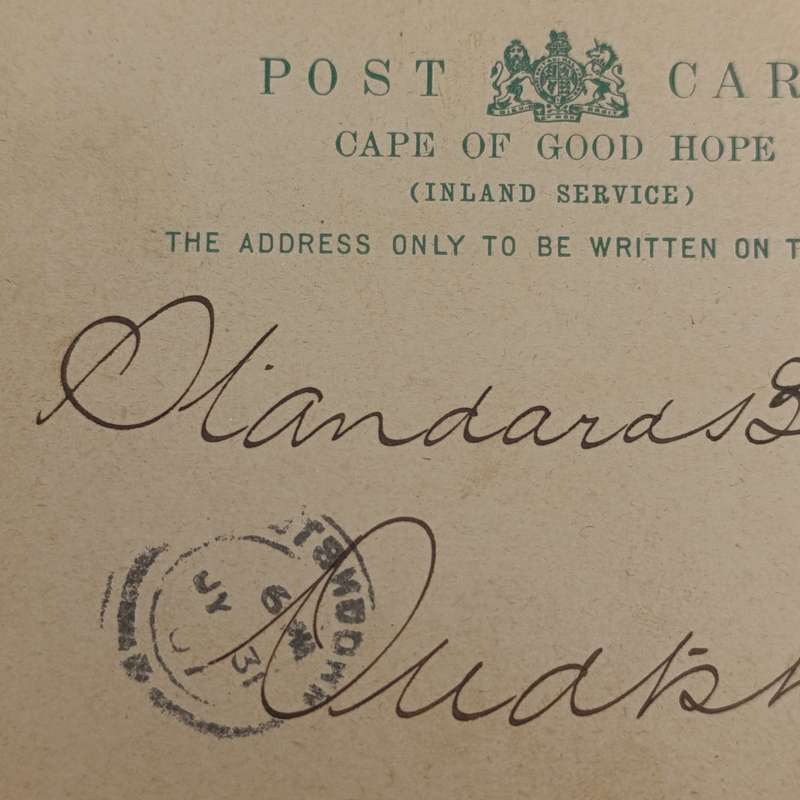 POST CAR
CAPE OF GOOD HOPE
(INLAND SERVICE)
THE ADDRESS ONLY TO BE WRITTEN ON T
Standards B
Oudtsh
JY 31